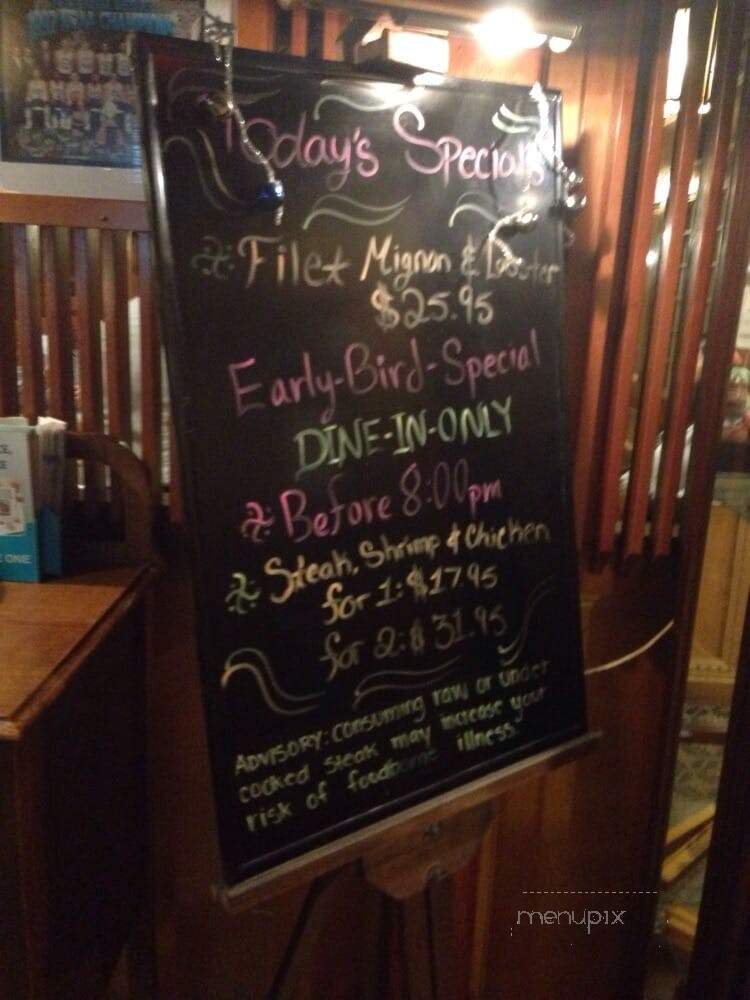 Today's Specials
Filet Mignon & Lobster
$25.95
Early-Bird-Special
DINE-IN-ONLY
Before 8:00pm
Steak, Shrimp & Chicken
for 1: $17.95
for 2: $31.95
ADVISORY: consuming raw or under
cooked steak may increase your
risk of foodborne illness.
E ONE
menupix